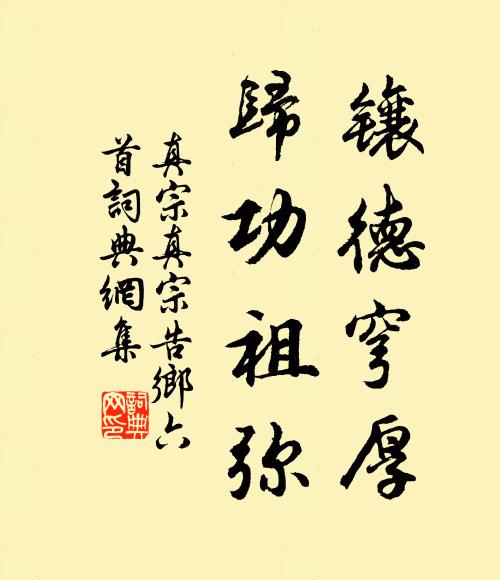 镶德穹厚
歸功祖弥
真宗真宗告鄉六
首詞典網集
詞典
网印